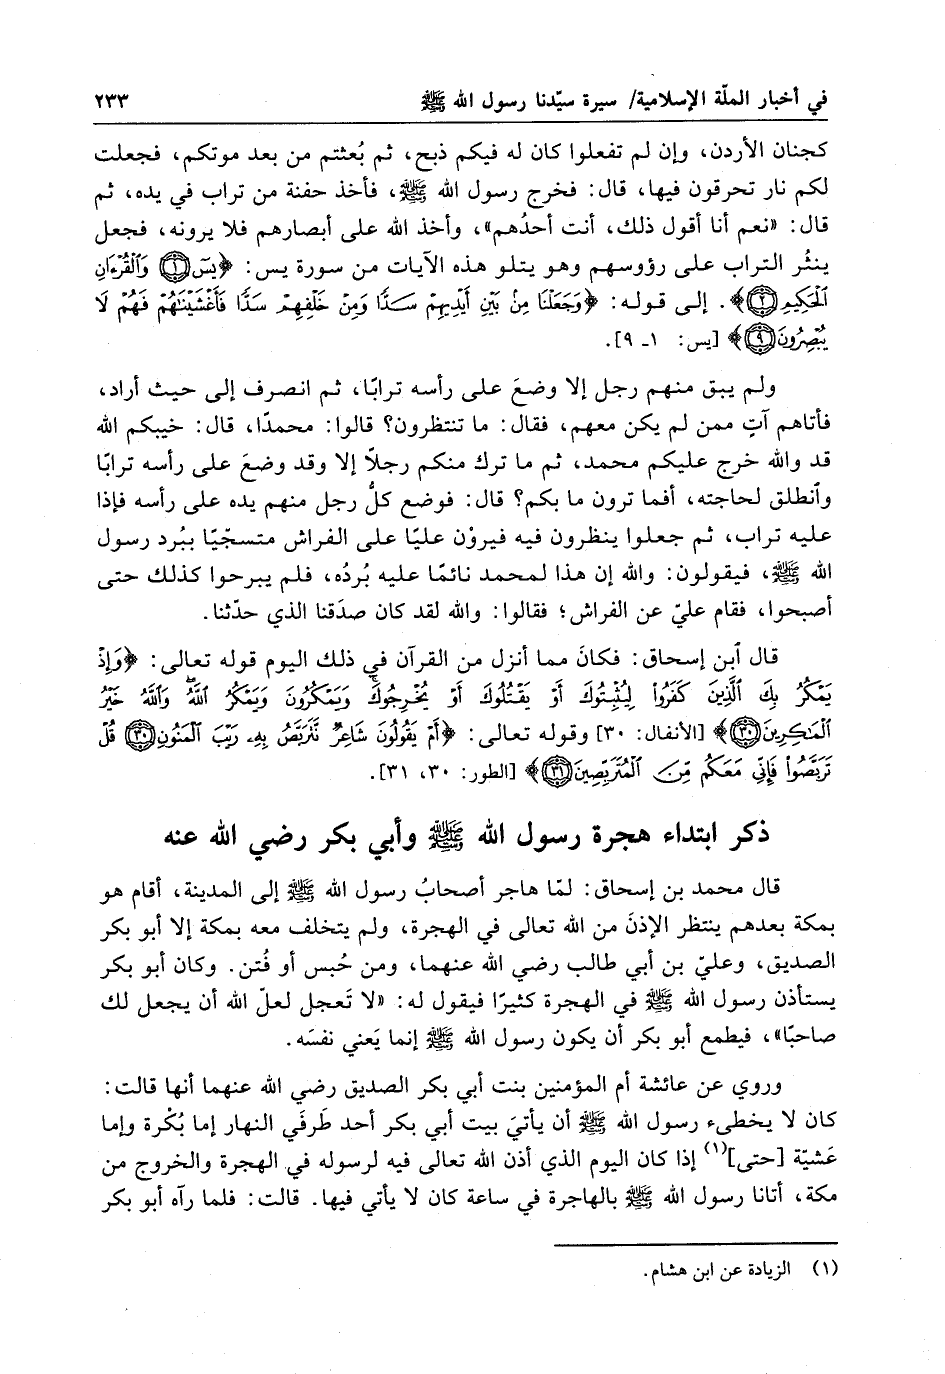 في أخبار الملّة الإسلامية/ سيرة سيّدنا رسول الله ﷺ ٢٣٣
كجنان الأردن، وإن لم تفعلوا كان له فيكم ذبح، ثم بُعثتم من بعد موتكم، فجعلت
لكم نار تحرقون فيها، قال: فخرج رسول الله ﷺ، فأخذ حفنة من تراب في يده، ثم
قال: «نعم أنا أقول ذلك، أنت أحدُهم»، وأخذ الله على أبصارهم فلا يرونه، فجعل
ينثُر التراب على رؤوسهم وهو يتلو هذه الآيات من سورة يس: ﴿يسٓ ۝١ وَٱلْقُرْءَانِ
ٱلْحَكِيمِ ۝٢﴾. إلى قوله: ﴿وَجَعَلْنَا مِنۢ بَيْنِ أَيْدِيهِمْ سَدًّا وَمِنْ خَلْفِهِمْ سَدًّا فَأَغْشَيْنَٰهُمْ فَهُمْ لَا
يُبْصِرُونَ ۝٩﴾ [يس: ١ـ ٩].
ولم يبق منهم رجل إلا وضعَ على رأسه ترابًا، ثم انصرف إلى حيث أراد،
فأتاهم آتٍ ممن لم يكن معهم، فقال: ما تنتظرون؟ قالوا: محمدًا، قال: خيبكم الله
قد والله خرج عليكم محمد، ثم ما ترك منكم رجلًا إلا وقد وضعَ على رأسه ترابًا
وٱنطلق لحاجته، أفما ترون ما بكم؟ قال: فوضع كلُّ رجل منهم يده على رأسه فإذا
عليه تراب، ثم جعلوا ينظرون فيه فيروْن عليًا على الفراش متسجّيًا ببُرد رسول
الله ﷺ، فيقولون: والله إن هذا لمحمد نائمًا عليه بُردُه، فلم يبرحوا كذلك حتى
أصبحوا، فقام عليّ عن الفراش؛ فقالوا: والله لقد كان صدَقنا الذي حدّثنا.
قال ٱبن إسحاق: فكانَ مما أنزل من القرآن في ذلك اليوم قوله تعالى: ﴿وَإِذْ
يَمْكُرُ بِكَ ٱلَّذِينَ كَفَرُوا۟ لِيُثْبِتُوكَ أَوْ يَقْتُلُوكَ أَوْ يُخْرِجُوكَ ۚ وَيَمْكُرُونَ وَيَمْكُرُ ٱللَّهُ ۖ وَٱللَّهُ خَيْرُ
ٱلْمَٰكِرِينَ ۝٣٠﴾ [الأنفال: ٣٠] وقوله تعالى: ﴿أَمْ يَقُولُونَ شَاعِرٌ نَّتَرَبَّصُ بِهِۦ رَيْبَ ٱلْمَنُونِ ۝٣٠ قُلْ
تَرَبَّصُوا۟ فَإِنِّى مَعَكُم مِّنَ ٱلْمُتَرَبِّصِينَ ۝٣١﴾ [الطور: ٣٠، ٣١].
ذكر ابتداء هجرة رسول الله ﷺ وأبي بكر رضي الله عنه
قال محمد بن إسحاق: لمّا هاجر أصحابُ رسول الله ﷺ إلى المدينة، أقام هو
بمكة بعدهم ينتظر الإذنَ من الله تعالى في الهجرة، ولم يتخلف معه بمكة إلا أبو بكر
الصديق، وعليّ بن أبي طالب رضي الله عنهما، ومن حُبس أو فُتن. وكان أبو بكر
يستأذن رسول الله ﷺ في الهجرة كثيرًا فيقول له: «لا تَعجل لعلّ الله أن يجعل لك
صاحبًا»، فيطمع أبو بكر أن يكون رسول الله ﷺ إنما يَعني نفسَه.
وروي عن عائشة أم المؤمنين بنت أبي بكر الصديق رضي الله عنهما أنها قالت:
كان لا يخطىء رسول الله ﷺ أن يأتيَ بيت أبي بكر أحد طَرفَي النهار إما بُكْرة وإما
عَشيّة [حتى](١) إذا كان اليوم الذي أذن الله تعالى فيه لرسوله في الهجرة والخروج من
مكة، أتانا رسول الله ﷺ بالهاجرة في ساعة كان لا يأتي فيها. قالت: فلما رآه أبو بكر
(١) الزيادة عن ابن هشام.